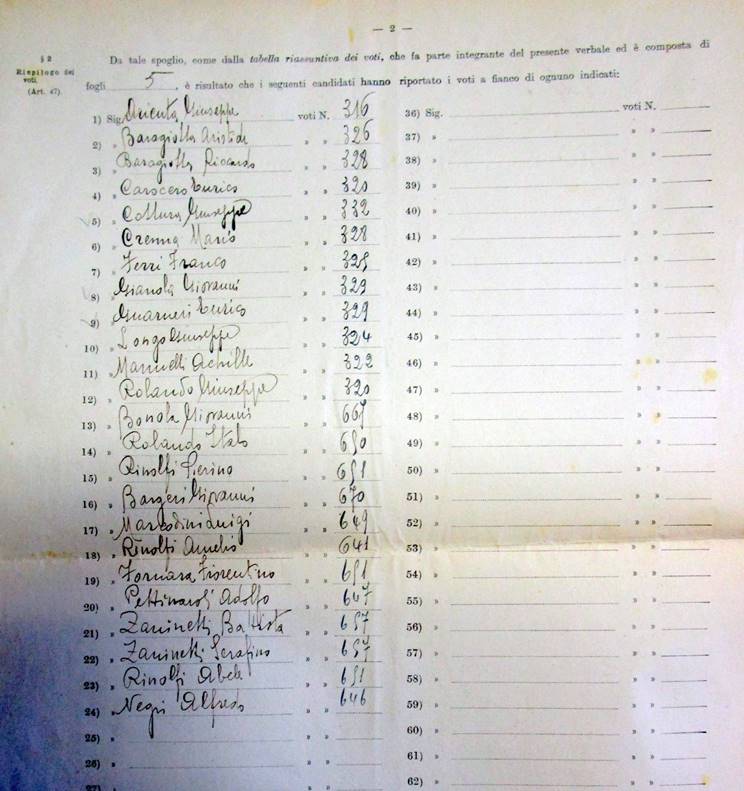 — 2 —
§ 2
Riepilogo dei
voti.
(Art. 47).
Da tale spoglio, come dalla tabella riassuntiva dei voti, che fa parte integrante del presente verbale ed è composta di
fogli 5, è risultato che i seguenti candidati hanno riportato i voti a fianco di ognuno indicati:
1) Sig. Giuseppe voti N. 316
2) » Baragiotta Aristide » » 326
3) » Baragiotta Riccardo » » 328
4) » Carocero Enrico » » 320
5) » Collura Giuseppe » » 332
6) » Crenna Mario » » 328
7) » Ferri Franco » » 325
8) » Gianola Giovanni » » 329
9) » Guarneri Enrico » » 329
10) » Longo Giuseppe » » 324
11) » Marinelli Achille » » 322
12) » Rolando Giuseppe » » 320
13) » Bonola Giovanni » »
14) » Rolando Italo » » 650
15) » Rinolfi Pierino » » 651
16) » Bargeri Giovanni » » 670
17) » Marcodini Luigi » » 649
18) » Rinolfi Amelio » » 641
19) » Fornara Fiorentino » » 651
20) » Pettinaroli Adolfo » » 647
21) » Zaninetti Battista » » 657
22) » Zaninetti Serafino » » 657
23) » Rinolfi Abele » » 651
24) » Negri Alfredo » » 646
25) » » »
26) » » »
27)
36) Sig. voti N.
37) » » »
38) » » »
39) » » »
40) » » »
41) » » »
42) » » »
43) » » »
44) » » »
45) » » »
46) » » »
47) » » »
48) » » »
49) » » »
50) » » »
51) » » »
52) » » »
53) » » »
54) » » »
55) » » »
56) » » »
57) » » »
58) » » »
59) » » »
60) » » »
61) » » »
62) » » »